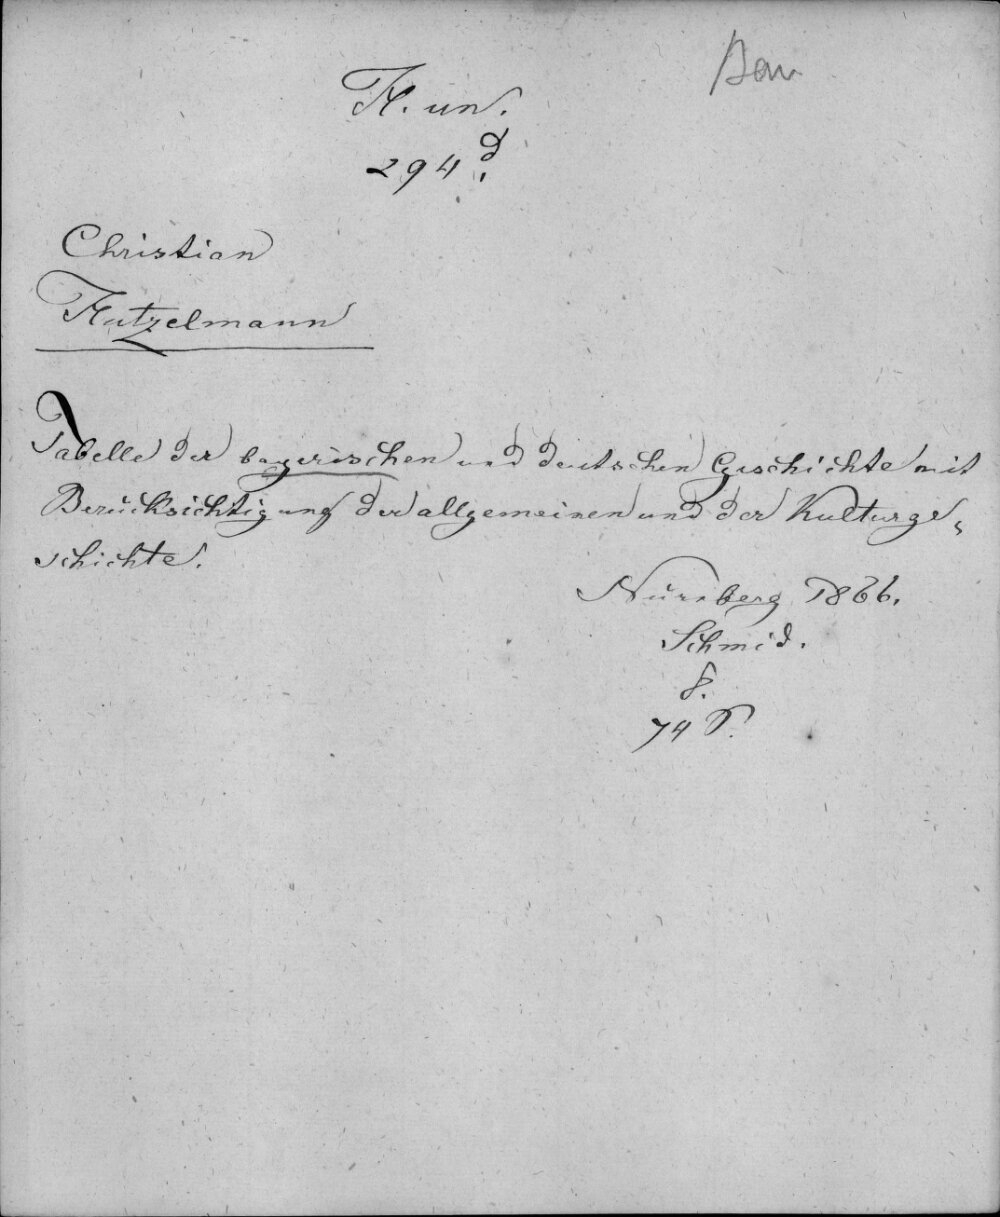 Bav
H. un.
294 d.
Christian
Hutzelmann
Tabelle der bayerischen und deutschen Geschichte mit
Berücksichtigung der allgemeinen und der Kulturge-
schichte.
Nürnberg 1866.
Schmid.
8.
74 S.